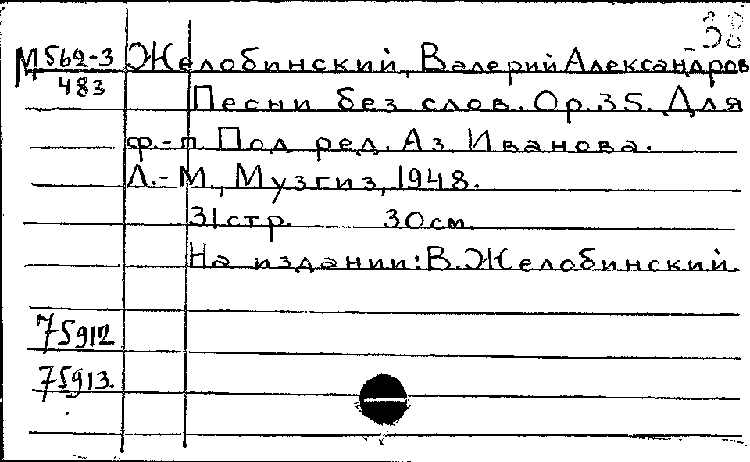 38
М 562-3 Желобинский, Валерий Александров
483 Песни без слов. Ор.35. Для
ф.-п. Под ред. Аз. Иванова.
Л.-М., Музгиз, 1948.
31 стр. 30 см.
На издании: В. Желобинский.
75912
75913.